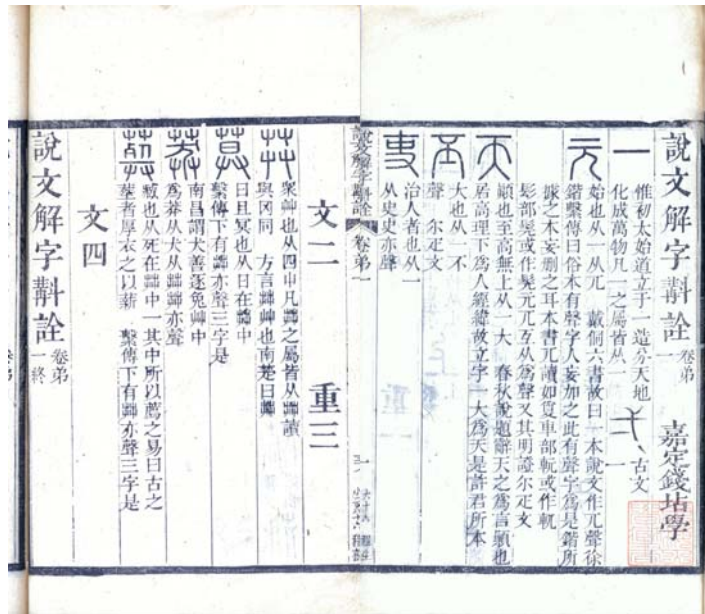 說文解字斠詮 卷弟一 嘉定錢坫學
一 惟初太始道立于一造分天地
化成萬物凡一之屬皆从一 弌 古文一
元 始也从一从兀 戴侗六書故曰一本說文作兀聲徐
鍇繫傳曰俗本有聲字人妄加之此有聲字爲是鍇所
據之本妄刪之耳本書兀讀如夐車部軏或作𨋎
髟部髡或作髨元兀互从爲聲又其明證尔疋文
天 顚也至高無上从一大 春秋說題辭天之爲言顚也
居高理下爲人經緯故立字一大爲天是許君所本
丕 大也从一不
聲 尔疋文
吏 治人者也从一
从史史亦聲
說文解字斠詮 卷弟一 一
文二 重三
茻 衆艸也从四屮凡茻之屬皆从茻讀
與冈同 方言茻艸也南楚曰茻
莫 日且冥也从日在茻中
繫傳下有茻亦聲三字是
莽 南昌謂犬善逐兔艸中
爲莽从犬从茻茻亦聲
葬 臧也从死在茻中一其中所以薦之易曰古之
葬者厚衣之以薪 繫傳下有茻亦聲三字是
文四
說文解字斠詮 卷弟一終